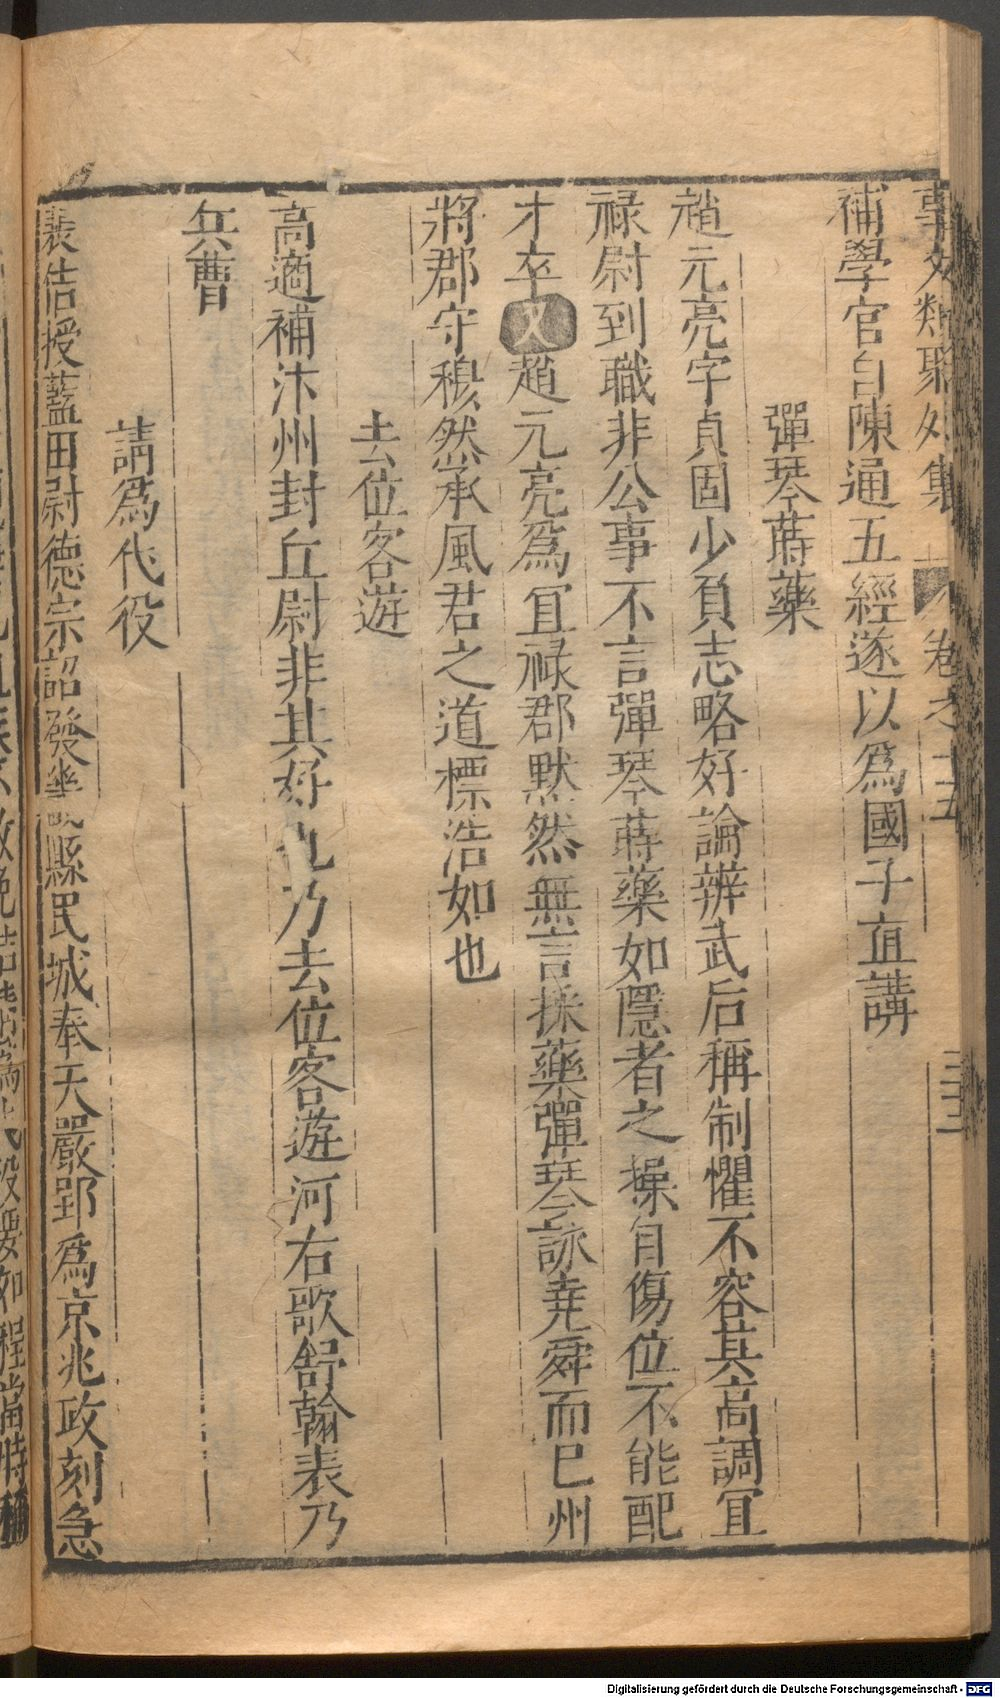 事文類聚外集 卷之十五 三三
補學官自陳通五經遂以爲國子直講
彈琴蒔藥
趙元亮字貞固少負志略好論辨武后稱制懼不容其高調冝
禄尉到職非公事不言彈琴蒔藥如隱者之操自傷位不能配
才卒又趙元亮爲冝禄郡黙然無言採藥彈琴詠堯舜而已州
將郡守穆然承風君之道標浩如也
去位客遊
高適補汴州封丘尉非其好也乃去位客遊河右歌舒翰表乃
兵曹
請爲代役
裴佶授藍田尉德宗詔發畿縣民城奉天嚴郢爲京兆政刻急
Digitalisierung gefördert durch die Deutsche Forschungsgemeinschaft - DFG